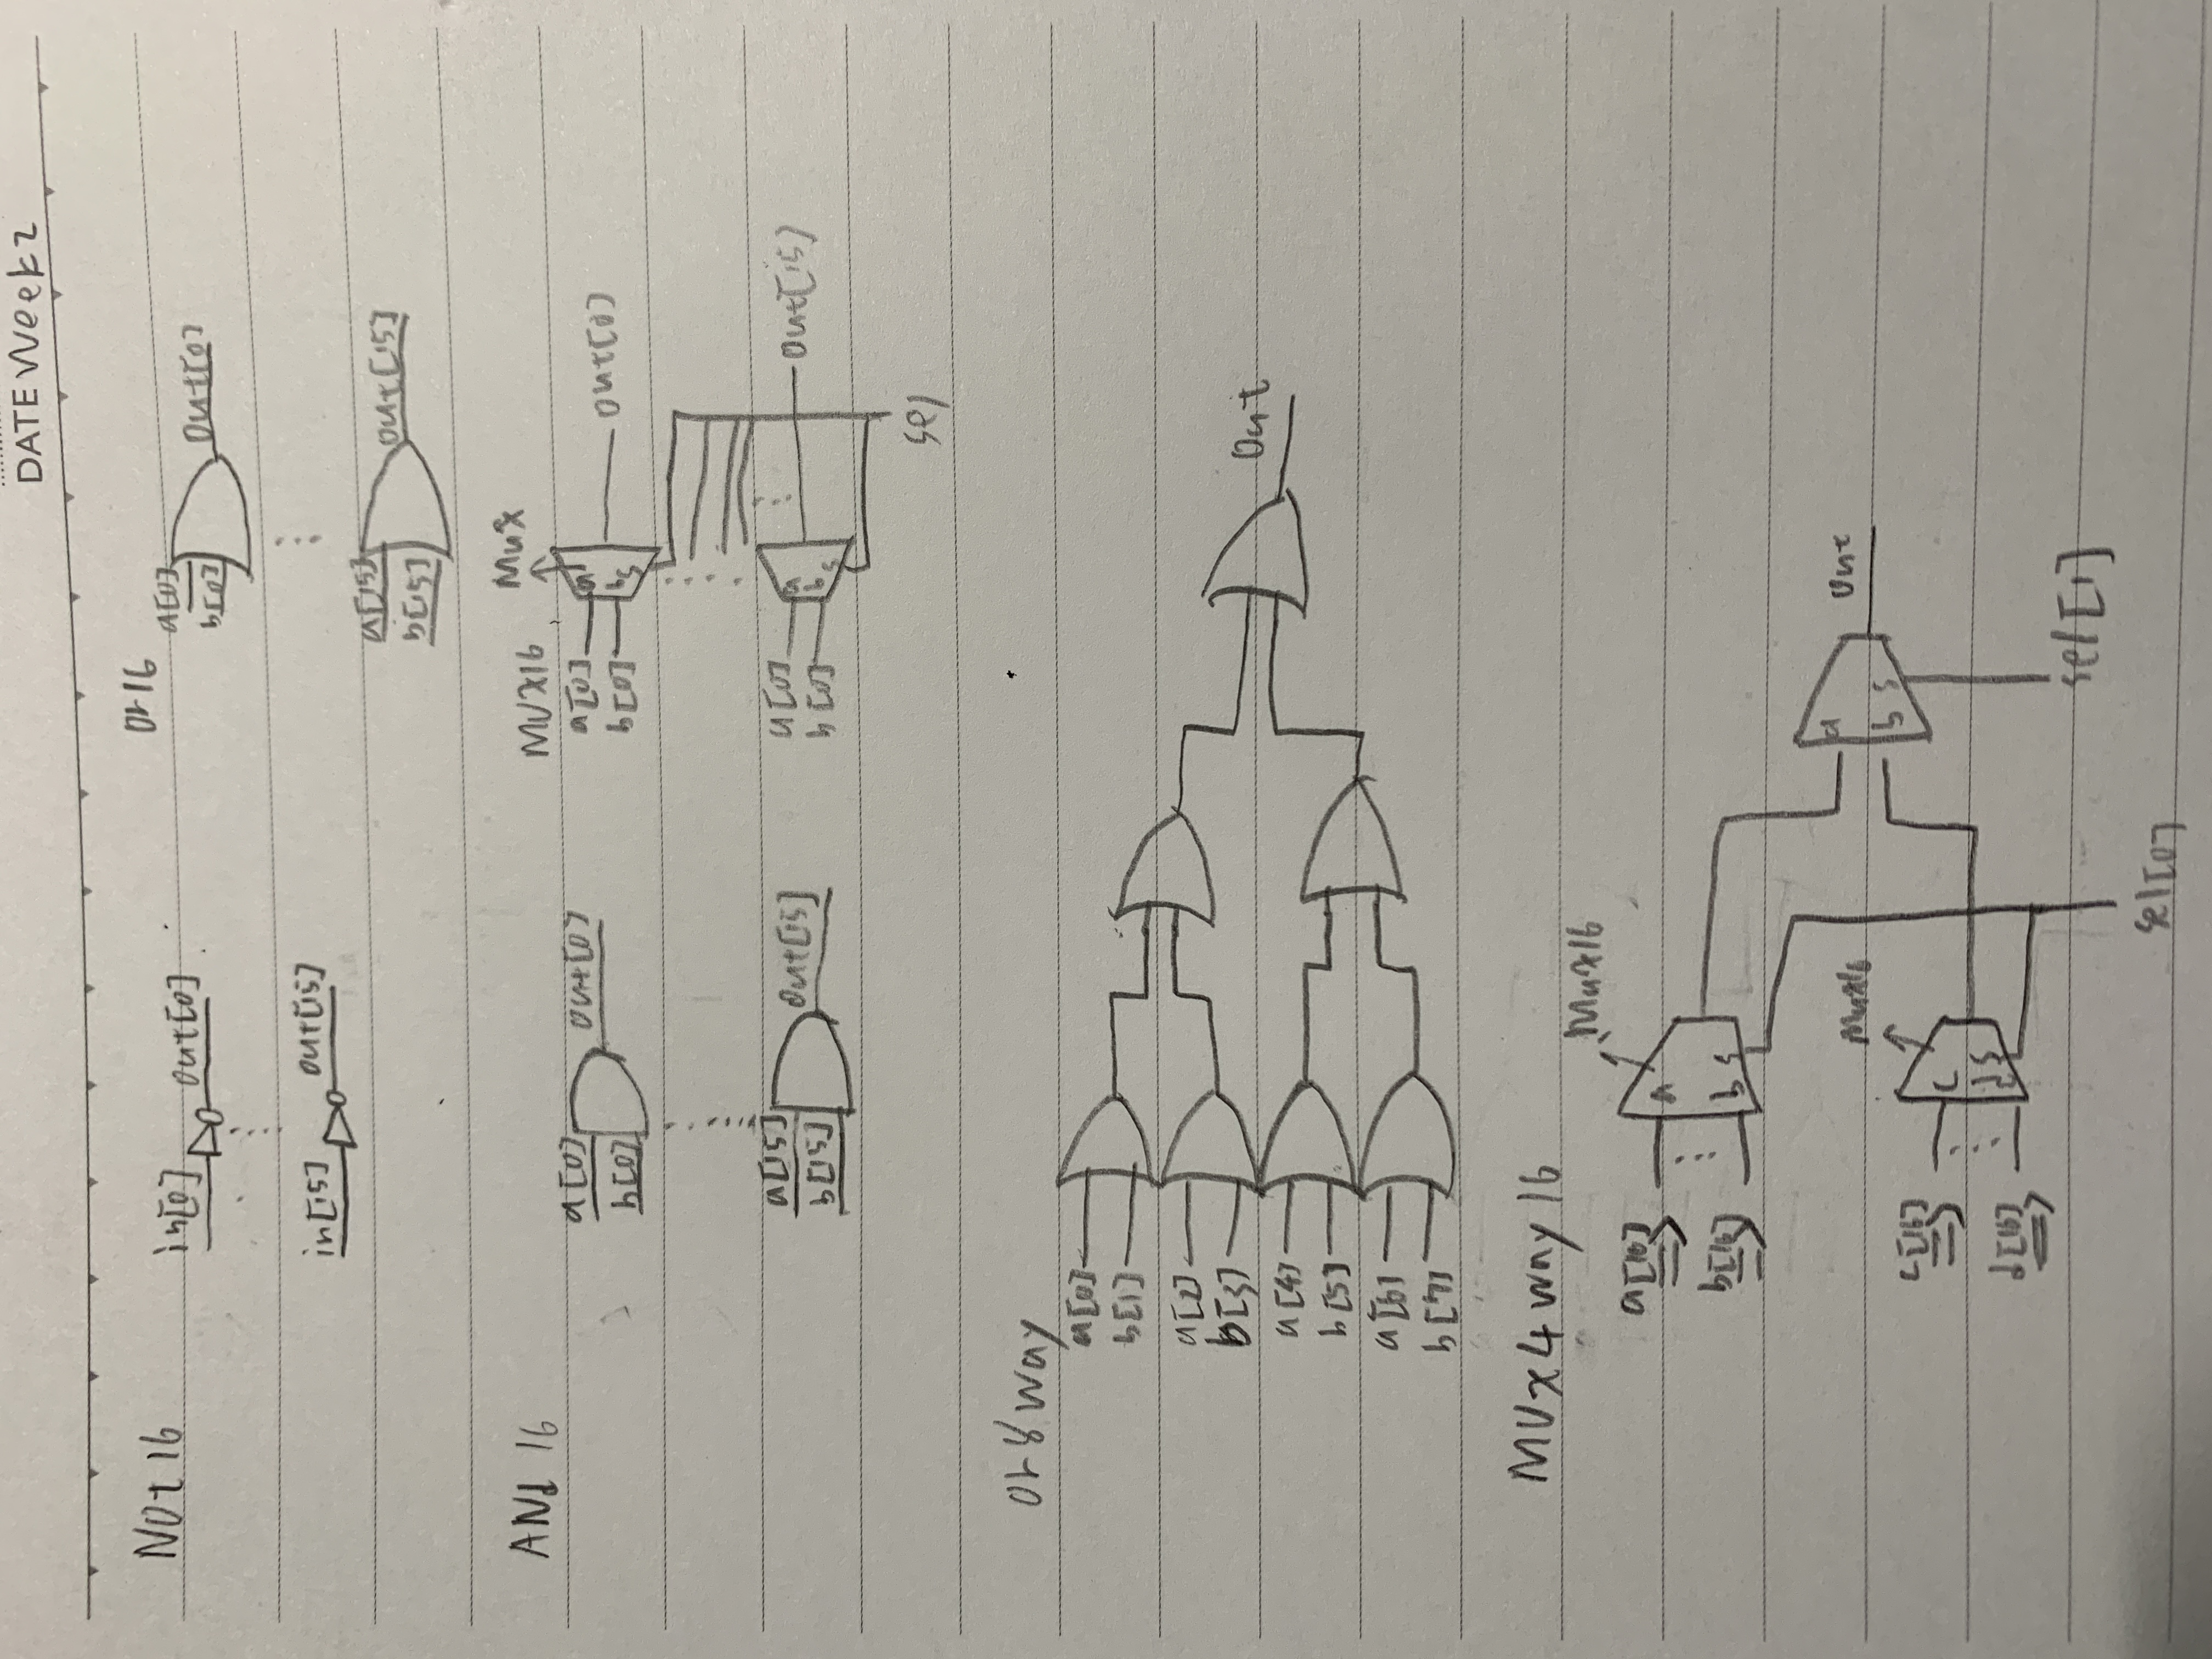 DATE Week2
NOt 16
in[0] out[0]
in[15] out[15]
Or16
a[0]
b[0]
Out[0]
a[15]
b[15]
out[15]
ANd 16
a[0]
b[0]
out[0]
a[15]
b[15]
out[15]
MUX16
Mux
a[0]
b[0]
a
b
s
out[0]
a[0]
b[0]
a
b
s
out[15]
sel
Or 8 way
a[0]
b[1]
a[2]
b[3]
a[4]
b[5]
a[6]
b[7]
Out
MUx 4 way 16
Mux16
a[16]
b[16]
a
b s
Mux16
c[16]
d[16]
c
d s
a
b s
out
sel[1]
sel[0]